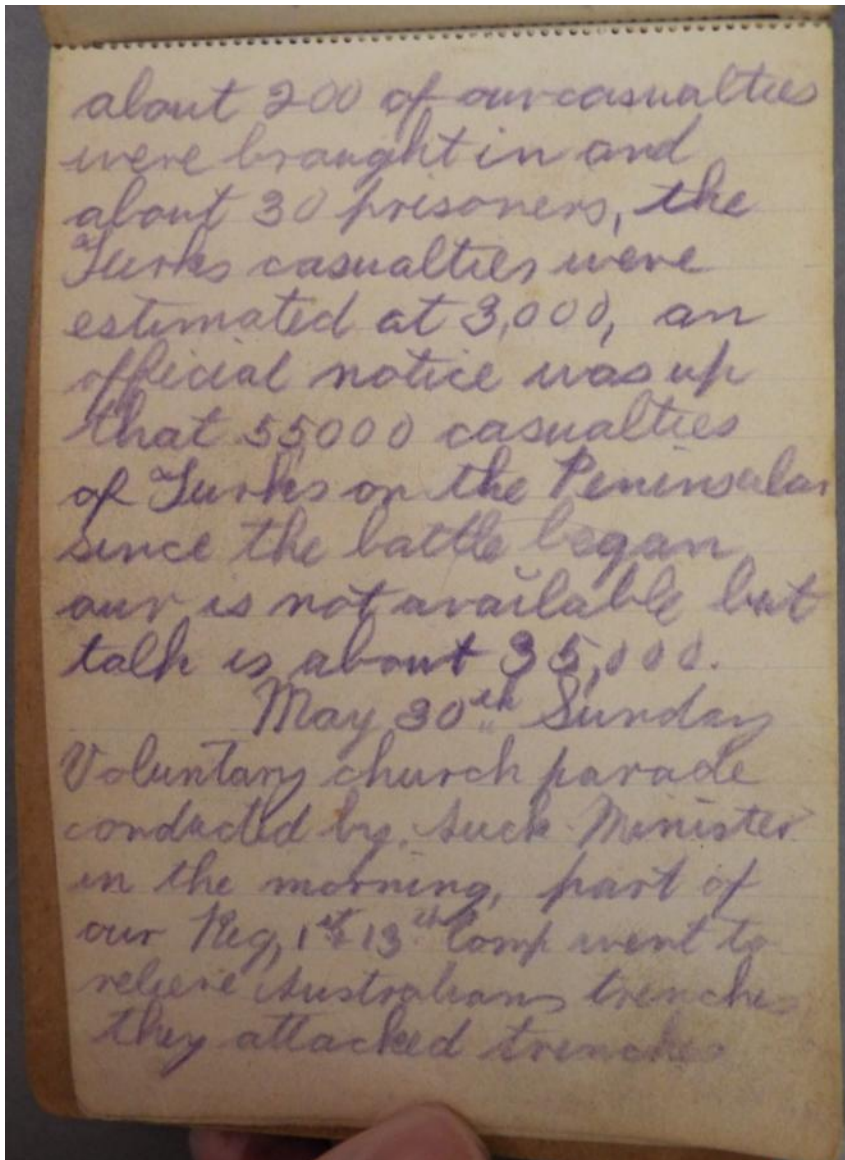 about 200 of our casualties
were braught in and
about 30 prisoners, the
Turks casualties were
estimated at 3,000, an
official notice was up
that 55000 casualties
of Turks on the Peninsular
since the battle began
our is not available but
talk is about 35,000.
May 30th Sunday
Voluntary church parade
conducted by. Minister
in the morning, part of
our Reg, 1st 13th Comp went to
releive Australians trenches
they attacked trenches